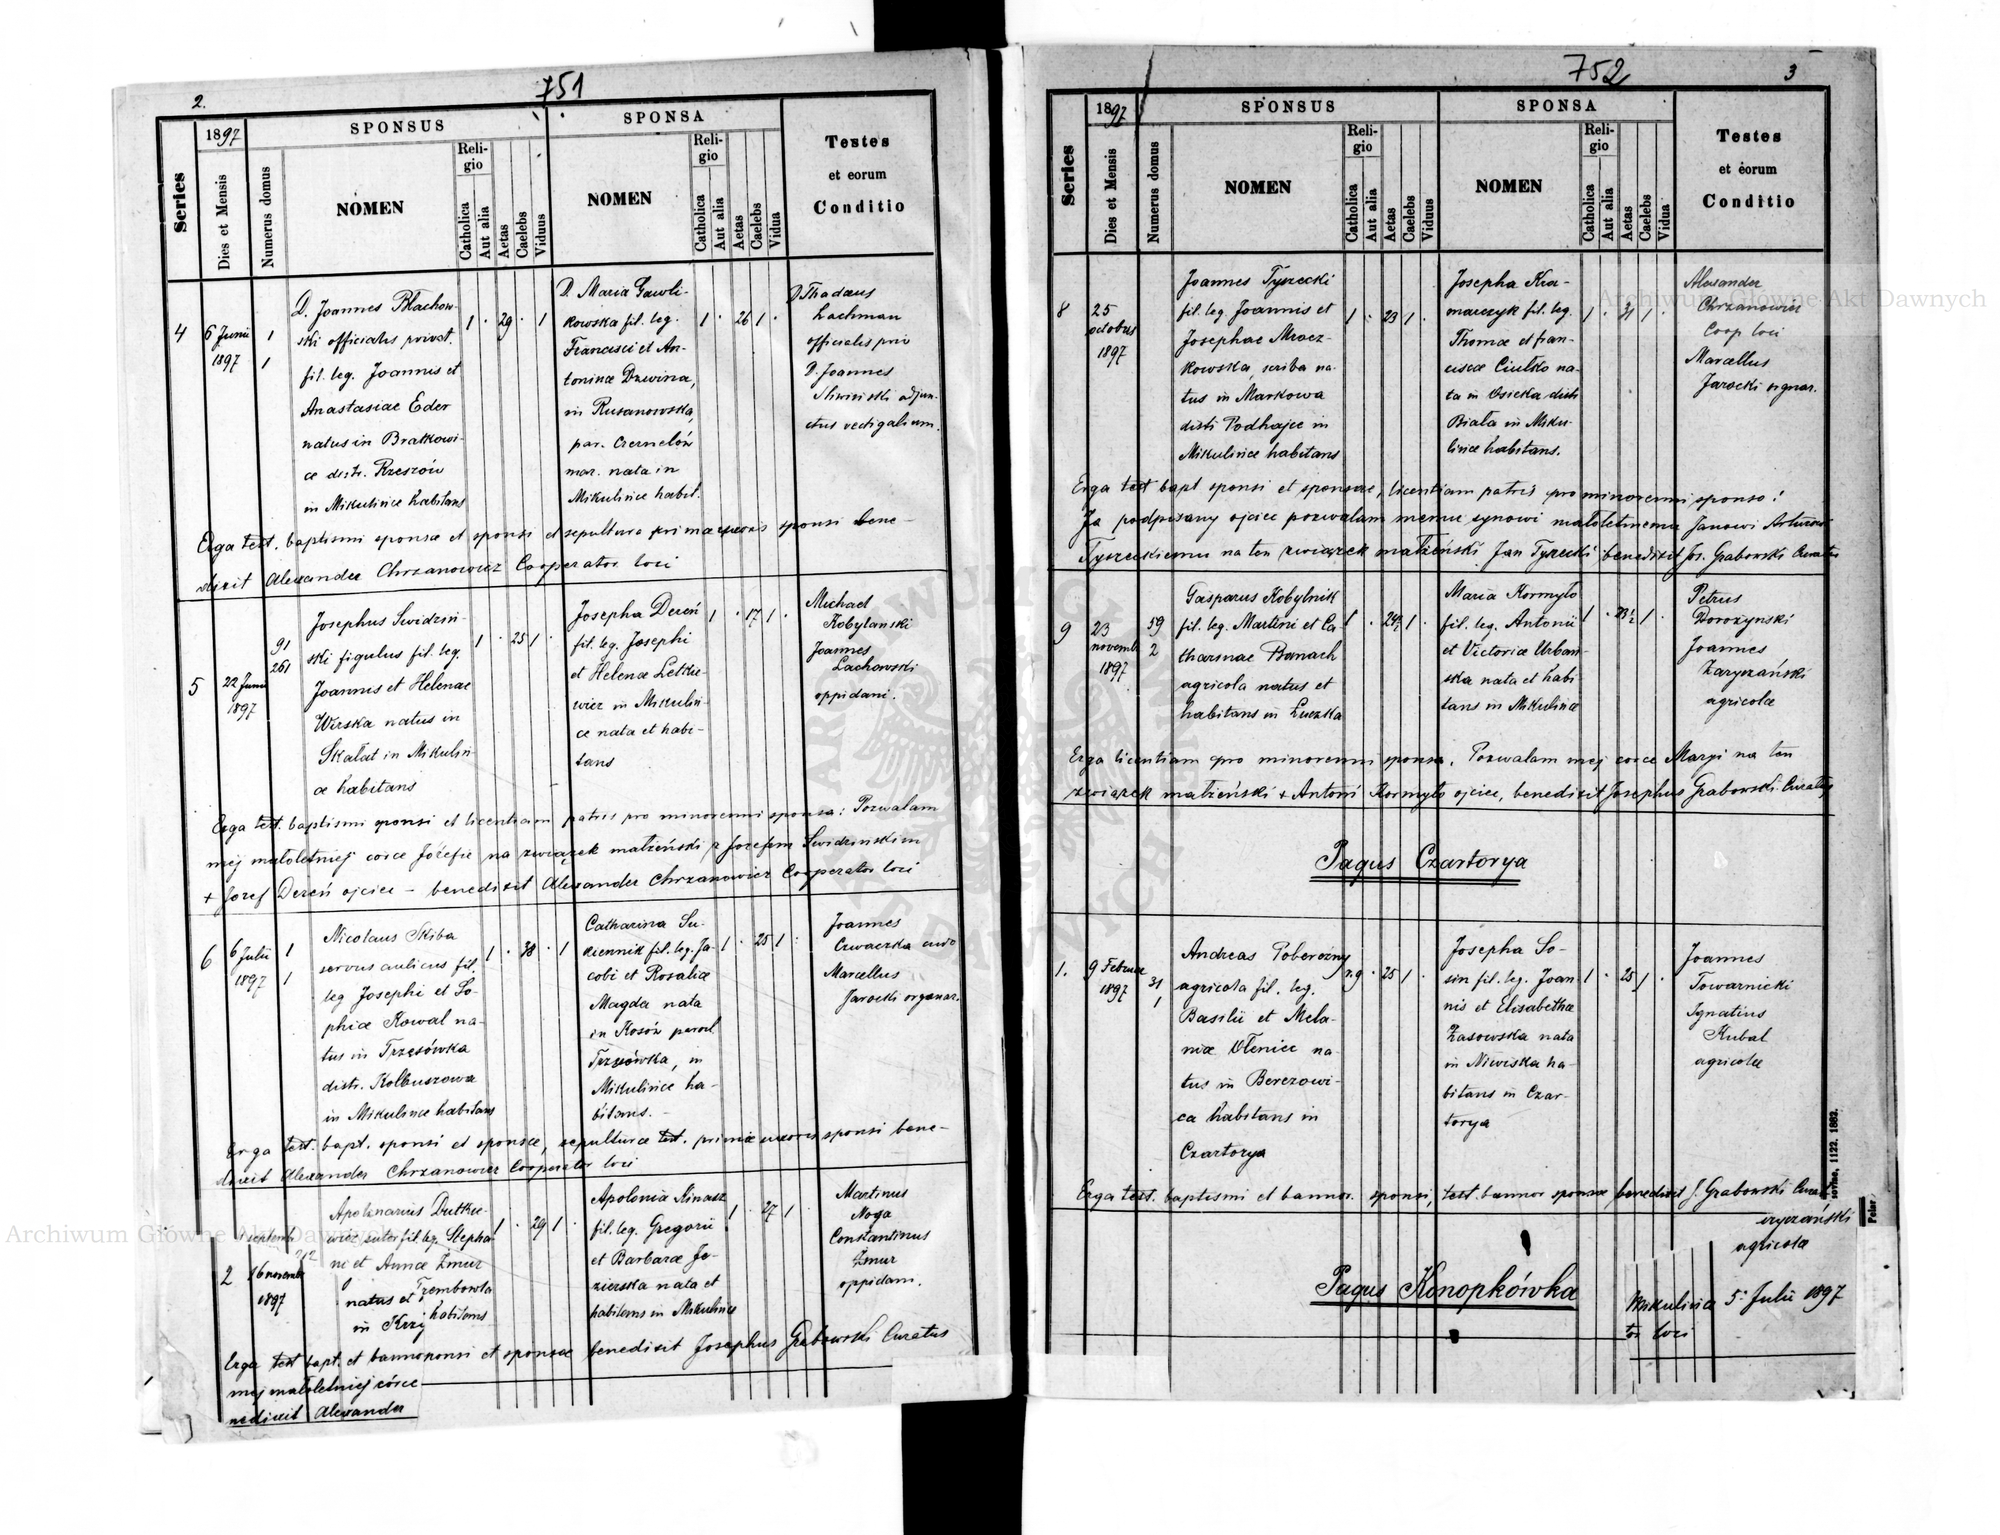 751
2.
Series
1897
Dies et Mensis
Numerus domus
SPONSUS
NOMEN
Religio
Catholica
Aut alia
Aetas
Caelebs
Viduus
SPONSA
NOMEN
Religio
Catholica
Aut alia
Aetas
Caelebs
Vidua
Testes
et eorum
Conditio
4
6 Junii
1897
1
1
D. Joannes Błachow-
ski officialis privat.
fil. leg. Joannis et
Anastasiae Eder
natus in Bratkowi-
ce distr. Rzeszów
in Mikulińce habitans
1 . 29 . 1
D. Maria Gawli-
kowska fil. leg.
Francisci et An-
toninae Dzwina,
in Rusanowska,
par. Czernelów
maz. nata in
Mikulińce habit.
1 . 26 1 .
D Thadaeus
Lachman
officialis priv
D. Joannes
Sliwiński adjun-
ctus vectigalium.
Erga test. baptismi sponsae et sponsi et sepultura primae uxoris sponsi bene-
dixit Alexander Chrzanowicz Cooperator loci
5
22 Junii
1897
91
261
Josephus Swidziń-
ski figulus fil. leg.
Joannis et Helenae
Wirska natus in
Skałat in Mikuliń-
ce habitans
1 . 25 1 .
Josepha Dereń
fil. leg. Josephi
et Helenae Letkie-
wicz in Mikuliń-
ce nata et habi-
tans
1 . 17 1 .
Michael
Kobylański
Joannes
Lachowski
oppidani.
Erga test. baptismi sponsi et licentiam patris pro minorenni sponsa: Pozwalam
mej małoletniej corce Józefie na związek małżeński z Jozefem Swidzinskim
+ Jozef Dereń ojciec - benedixit Alexander Chrzanowicz Cooperator loci
6
6 Julii
1897
1
1
Nicolaus Skiba
servus aulicus fil.
leg Josephi et So-
phiae Kowal na-
tus in Trzęsówka
distr. Kolbuszowa
in Mikulińce habitans
1 . 38 . 1
Catharina Su-
kiennik fil. leg. Ja-
cobi et Rosaliae
Magda nata
in Kosów paroch
Trzęsówka, in
Mikulińce ha-
bitans. -
1 . 25 1 .
Joannes
Czwaczka
Marcellus
Jarocki organar.
Erga test. bapt. sponsi et sponsae, sepulturae test. primae uxoris sponsi bene-
dixit Alexander Chrzanowicz Cooperator loci
2
16 novemb
1897
Apolinarius Dutkie-
wicz sutor fil. leg. Stepha-
ni et Annae Zmur
natus et Trembowla
in Krzy habitans
1 . 29 1 .
Apolonia Kinasz
fil. leg. Gregorii
et Barbarae Je-
zierska nata et
habitans in Mikulińce
1 . 27 1
Martinus
Noga
Constantinus
Żmur
oppidam.
Erga test bapt. et bannor sponsi et sponsae benedixit Josephus Grabowski Curatus
mej małoletniej córce
nedixit Alexander
752
3
Series
1897
Dies et Mensis
Numerus domus
SPONSUS
NOMEN
Religio
Catholica
Aut alia
Aetas
Caelebs
Viduus
SPONSA
NOMEN
Religio
Catholica
Aut alia
Aetas
Caelebs
Vidua
Testes
et eorum
Conditio
8
25
octobris
1897
Joannes Tyszecki
fil. leg. Joannis et
Josephae Mrocz-
kowska, scriba na-
tus in Markowa
distr. Podhajce in
Mikulińce habitans
1 . 23 1 .
Josepha Kra-
marczyk fil. leg.
Thomae et Fran-
ciscae Ciułko na-
ta in Osiecka distr
Biała in Miku-
lińce habitans.
1 . 31 1 .
Alexander
Chrzanowicz
Coop loci
Marcellus
Jarocki organar.
Erga test bapt sponsi et sponsae, licentiam patris pro minorenni sponso:
Ja podpisany ojciec pozwalam memu synowi małoletniemu Janowi Arturowi
Tyszeckiemu na ten związek małżeński Jan Tyszecki, benedixit Jos. Grabowski Curatus
9
23
novemb
1897
59
2
Gasparus Kobylnik
fil. leg. Martini et Ca-
tharinae Banach
agricola natus et
habitans in Łuczka
1 . 24½ 1 .
Maria Kormyło
fil. leg. Antonii
et Victoriae Urban-
ska nata et habi-
tans in Mikulińce
1 . 23½ 1 .
Petrus
Dorożynski
Joannes
Zaryczański
agricolae
Erga licentiam pro minorenni sponsa. Pozwalam mej corce Maryi na ten
związek małżeński + Antoni Kormyło ojciec, benedixit Josephus Grabowski Curatus
Pagus Czartorya
1.
9 Februar
1897
31
1
Andreas Poberezny
agricola fil. leg.
Basilii et Mela-
niae Oleniec na-
tus in Berezowi-
ca habitans in
Czartorya
r.g . 25 1 .
Josepha So-
sin fil. leg. Joan-
nis et Elisabethae
Zasowska nata
in Niwiska ha-
bitans in Czar-
torya
1 . 25 1 .
Joannes
Towarnicki
Ignatius
Kubal
agricolae
Erga test. baptismi et bannor. sponsi, test. bannor sponsae benedixit J. Grabowski Curat
ryczański
agricolae
Pagus Konopkówka
Mikulińce 5. Julii 1897
tor loci
1122. 1882.
Archiwum Główne Akt Dawnych
Archiwum Główne Akt Dawnych